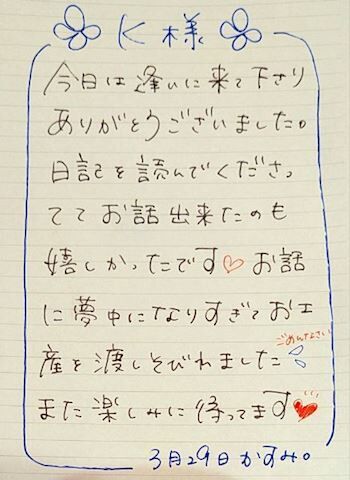 K様
今日は逢いに来て下さり
ありがとうございました。
日記を読んでくださっ
てて お話出来たのも
嬉しかったです♡ お話
に夢中になりすぎてお工
ごめんなさい
産を渡しそびれました
また楽しみに待ってます♥
3月29日かすみ。